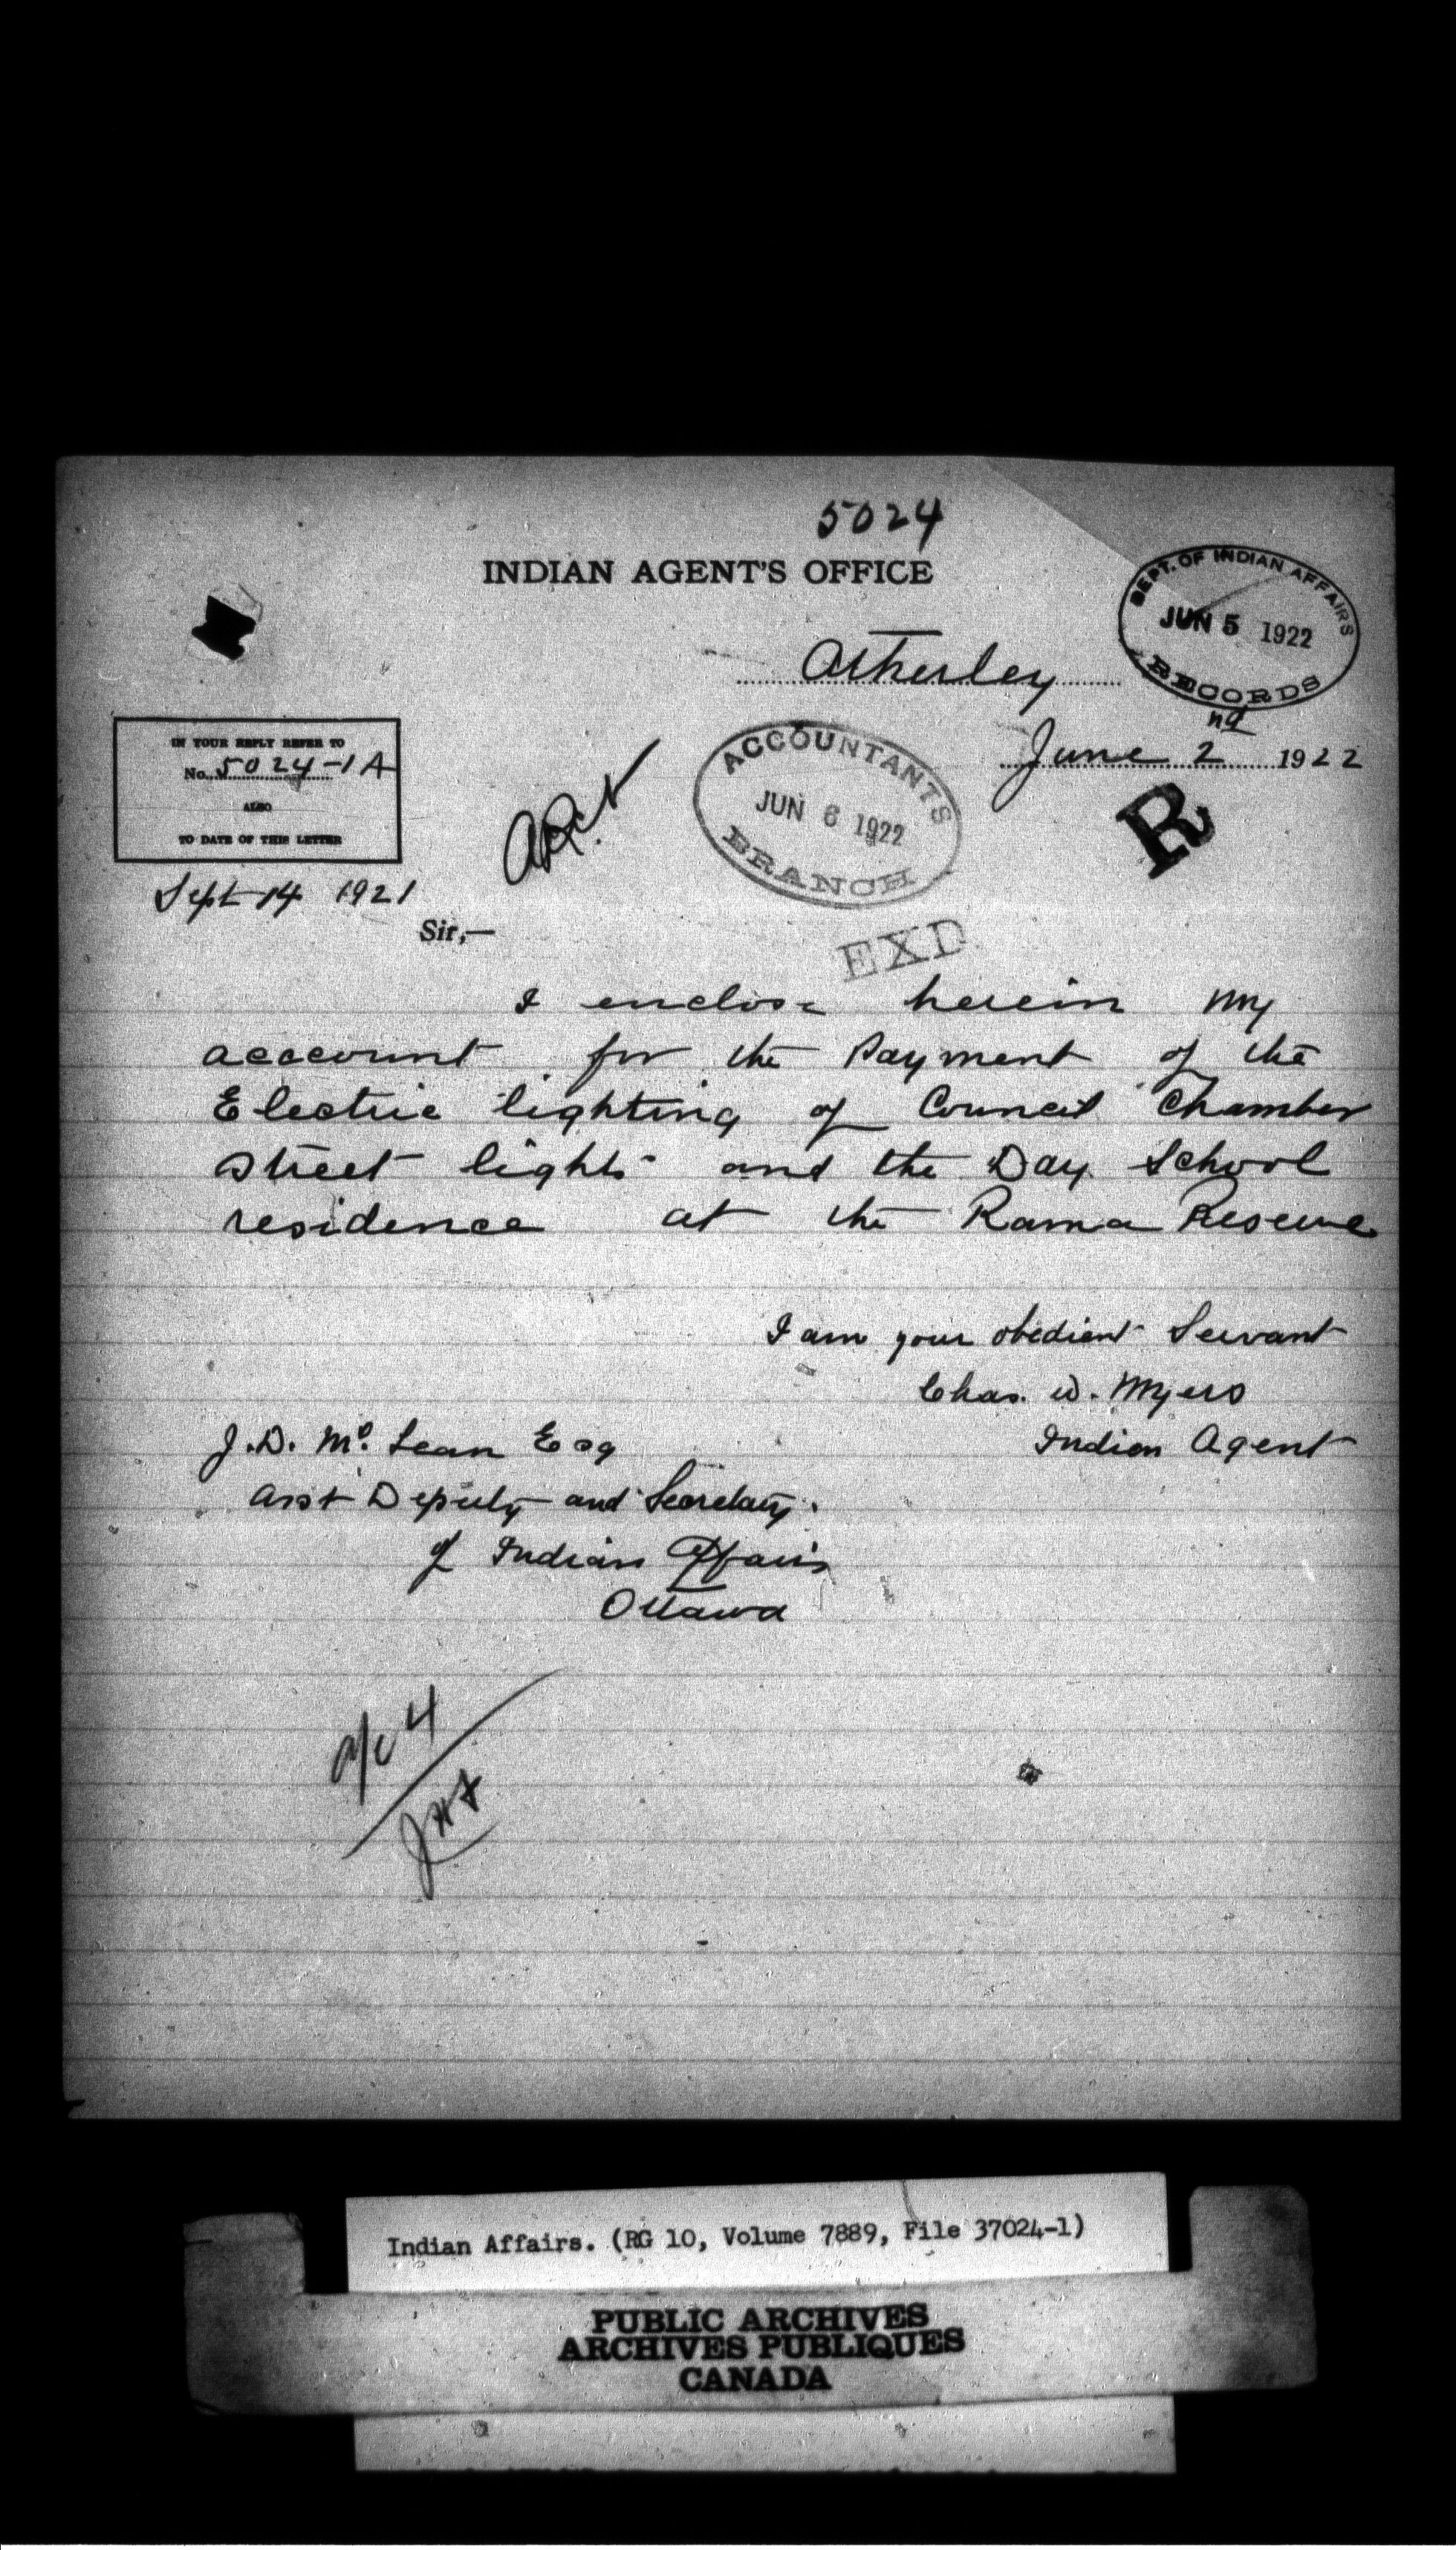 5024
INDIAN AGENT'S OFFICE
DEPT. OF INDIAN AFFAIRS
JUN 5 1922
RECORDS
Atherley
June 2nd 1922
IN YOUR REPLY REFER TO
No. 5024-1A
ALSO
TO DATE OF THIS LETTER
Sept 14 1921
ACCOUNTANTS
JUN 6 1922
BRANCH
R
Sir,—
EXD
I enclose herein my
acccount for the Payment of the
Electric lighting of Council Chamber
street lights and the Day School
residence at the Rama Reserve
I am your obedient Servant
Chas. W. Myers
Indian Agent
J.D. Mc. Lean Esq
Asst Deputy and Secretary.
of Indian Affairs
Ottawa
a/c 4
Indian Affairs. (RG 10, Volume 7889, File 37024-1)
PUBLIC ARCHIVES
ARCHIVES PUBLIQUES
CANADA